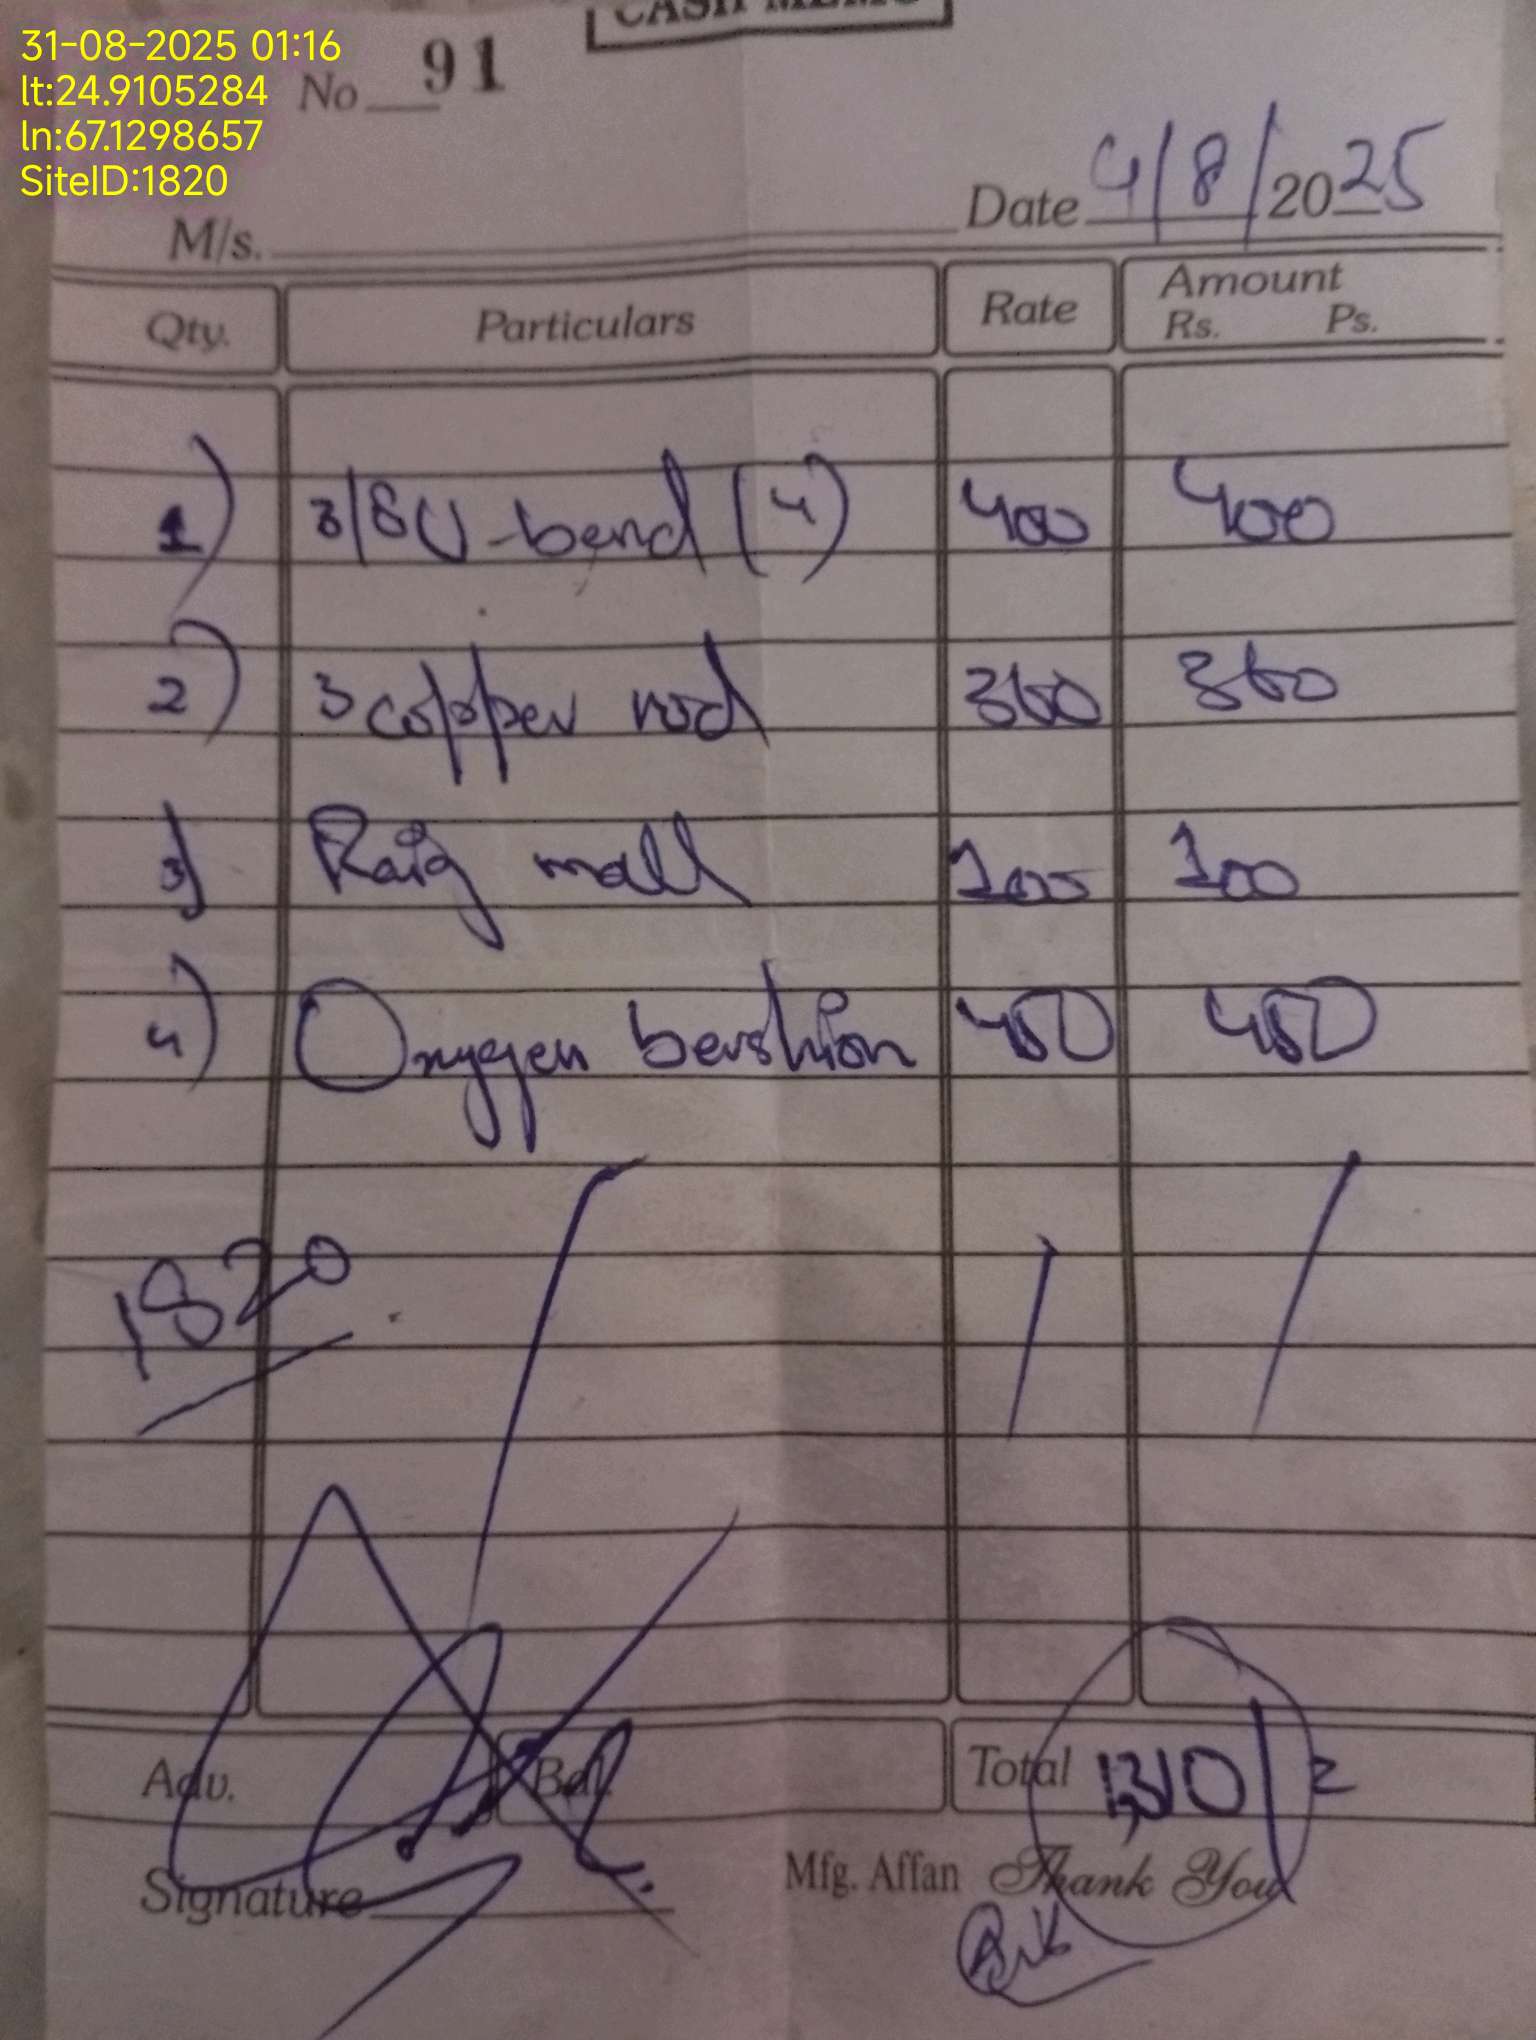 31-08-2025 01:16
lt:24.9105284
ln:67.1298657
SiteID:1820
CASH MEMO
No 91
Date 4/8/2025
M/s.
Qty. Particulars Rate Amount Rs. Ps.
1) 3/8 U-bend (4) 400 400
2) 3 copper rod 360 360
3) Raig mall 100 100
4) Oxygen bershion 450 450
1820
Adv. Bal. Total 1,310/=
Signature
Mfg. Affan Thank You